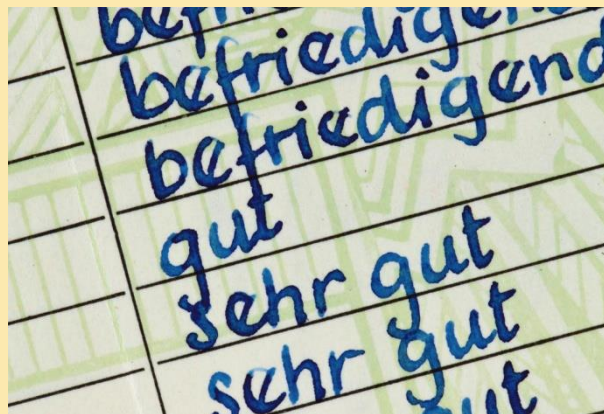 befriedigend
befriedigend
gut
sehr gut
sehr gut
gut